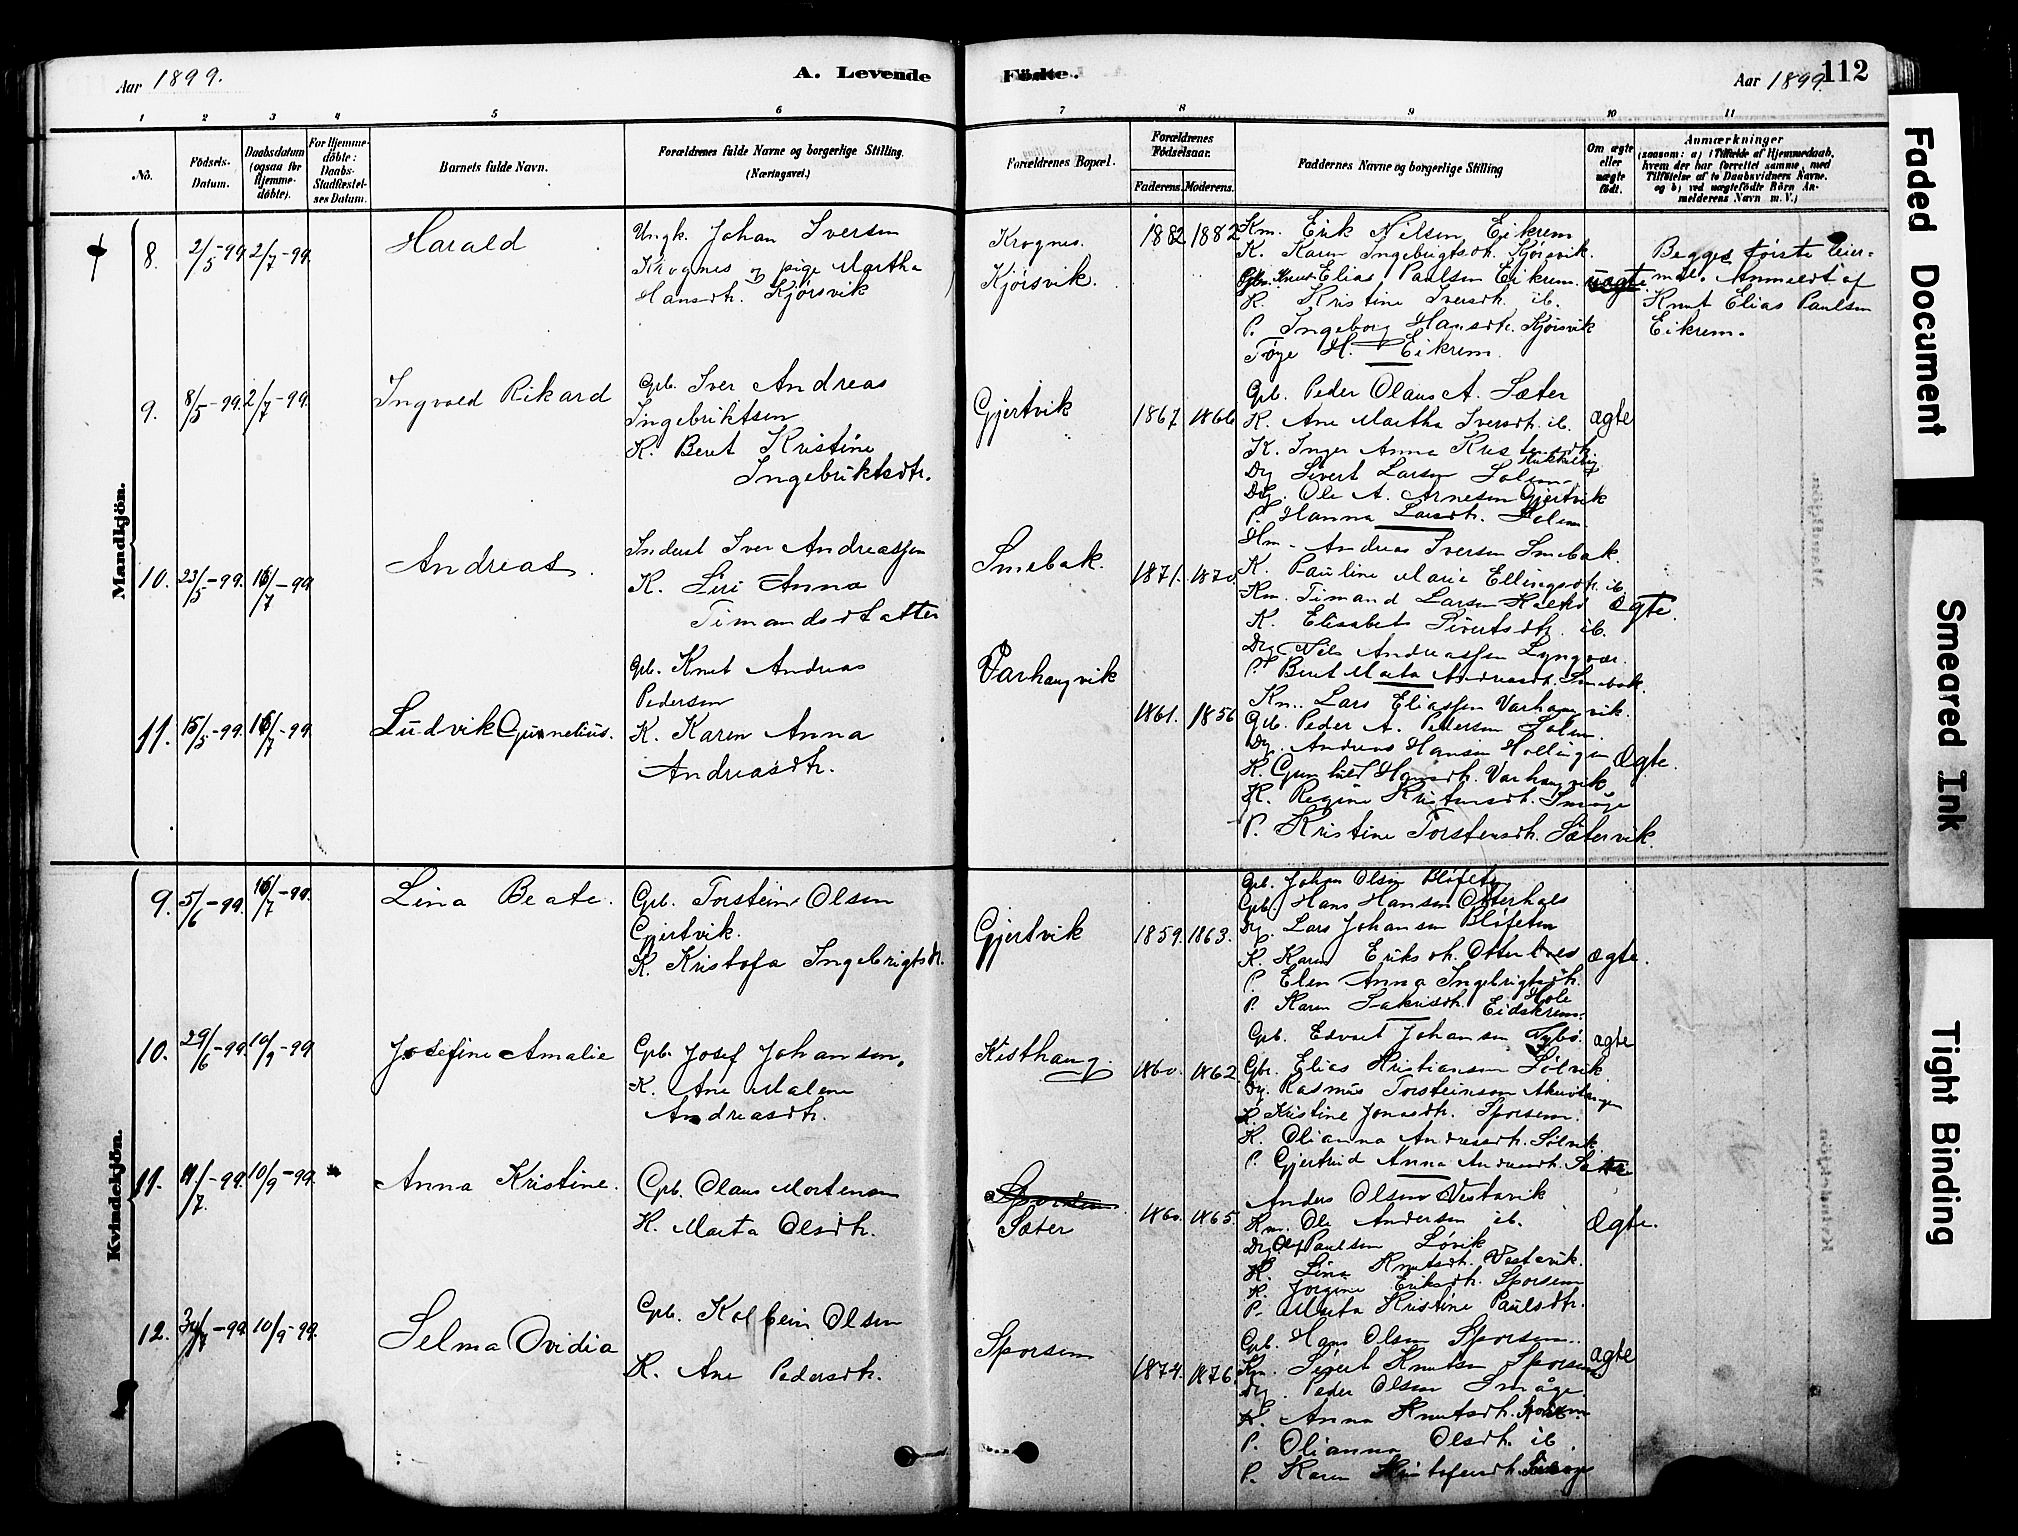 Aar 1899.
A. Levende
Fødte.
Aar 1899.
112
1 2 3 4 5 6 7 8 9 10 11
No.
Fødsels-
Datum.
Daabsdatum
(ogsaa for
hjemme-
døbte).
For Hjemme-
døbte:
Daabs-
Stadfæstel-
ses Datum.
Barnets fulde Navn.
Forældrenes fulde Navne og borgerlige Stilling.
(Næringsvei.)
Forældrenes Bopæl.
Forældrenes
Fødselsaar.
Faderens. Moderens.
Faddernes Navne og borgerlige Stilling
Om ægte
eller
uægte
født.
Anmærkninger
(saasom: a) i Tilfælde af Hjemmedaab,
hvem der har forrettet samme, med
Tilføielse af to Daabsvidners Navne,
og b) ved uægtefødte Børn An-
melderens Navn m. V.)
Mandkjön.
8. 2/5-99 2/7-99.
Harald
Ungk. Johan Iversen
Krognes og pige Martha
Hansdtr. Kjørsvik
Krognes.
Kjørsvik.
1882 1882
Km. Erik Nilsen Eikrem
K. Karen Ingebrigtsdtr. Kjørsvik.
Gbr. Knut Elias Paulsen Eikrem.
K. Kristine Iversdtr. ib.
P. Ingeborg Hansdtr. Kjørsvik
H. Eikrem.
uægte.
Begges første leier-
mål. Anmeldt af
Knut Elias Paulsen
Eikrem.
9. 8/5-99. 2/7-99.
Ingvald Rikard
Gb. Iver Andreas
Ingebriktsen
K. Berit Kristine
Ingebriktsdtr.
Gjertvik
1867. 1866
Gb. Peder Olaus A. Sæter
K. Ane Martha Iversdtr. ib.
K. Inger Anna
Dg Sivert Larsen Solem
Dg. Ole A. Arnesen Gjertvik
P. Hanna Larsdtr. Solem.
ægte
10. 23/5-99. 16/7-99
Andreas.
Inderst Iver Andreassen
K. Siri Anna
Timandsdatter
Smebak.
1871. 1870.
Hm. Andreas Iversen Smebak.
K. Pauline Marie Ellingsdtr. ib.
Km. Timand Larsen
K. Elisabet Sivertsdtr. ib.
Dg Nils Andreassen Lyngvær.
P. Berit Marta Andreasdtr. Smebak.
Ægte.
11. 15/5-99. 16/7-99
Ludvik Gunnelius.
Gb. Knut Andreas
Pedersen
K. Karen Anna
Andreasdtr.
Varhaugvik
1861. 1856
Km. Lars Eliassen Varhaugvik.
Gb. Peder A. Pedersen Solem.
Dg. Andreas Hansen
K. Gunhild Hansdtr. Varhaugvik
K. Regine Kristensdtr. Småge
P. Kristine Torstensdtr. Sætervik.
Ægte.
Kvindekjön.
9. 5/6-99. 16/7-99.
Lina Beate.
Gb. Torstein Olsen
Gjertvik.
K. Kristofa Ingebrigtsdt.
Gjertvik
1859. 1863.
Gb. Johan Olsen
Gb. Hans Hansen Otterhals
Dg. Lars Johansen
K. Karen Eriksdtr. Otterhals
P. Elen Anna Ingebrigtsdtr.
Hole
P. Karen Eidskrem.
Ægte.
10. 29/6-99. 10/9-99
Josefine Amalie
Gb. Josef Johansen,
K. Ane Malene
Andreasdtr.
Kisthaug
1860. 1862
Gb. Edvart Johansen
Gbr. Elias Kristiansen Sølvik
Dg. Rasmus Torsteinsen
K. Kristine Jonasdtr. Sporsem.
K. Olianna Andreasdtr. Sølvik
P. Gjertrud Anna Andreasdtr. Sæter
ægte
11. 11/7-99. 10/9-99.
Anna Kristine.
Gb. Olaus Mortensen
K. Marta Olsdtr.
Sporsem
Sæter
1860. 1865.
Anders Olsen Vestavik
Km. Ole Andersen ib.
Dg Olaf Paulsen Løvik
K. Lina Knutsdtr. Vestavik.
K. Jørgine Eriksdtr. Sporsem
P. Marta Kristine Paulsdtr.
Ægte.
12. /7-99. 10/9-99.
Selma Ovidia
Gb. Kolbein Olsen
K. Ane Pedersdtr.
Sporsem
1874. 1876.
Gb. Hans Olsen Sporsem.
Km. Sivert Knutsen Sporsem
Dg. Peder Olsen Småge.
K. Anna Knutsdtr. Sporsem
P. Olianna Olsdtr. ib.
P. Karen Kristofersdtr. Småge
ægte
Faded Document
Smeared Ink
Tight Binding